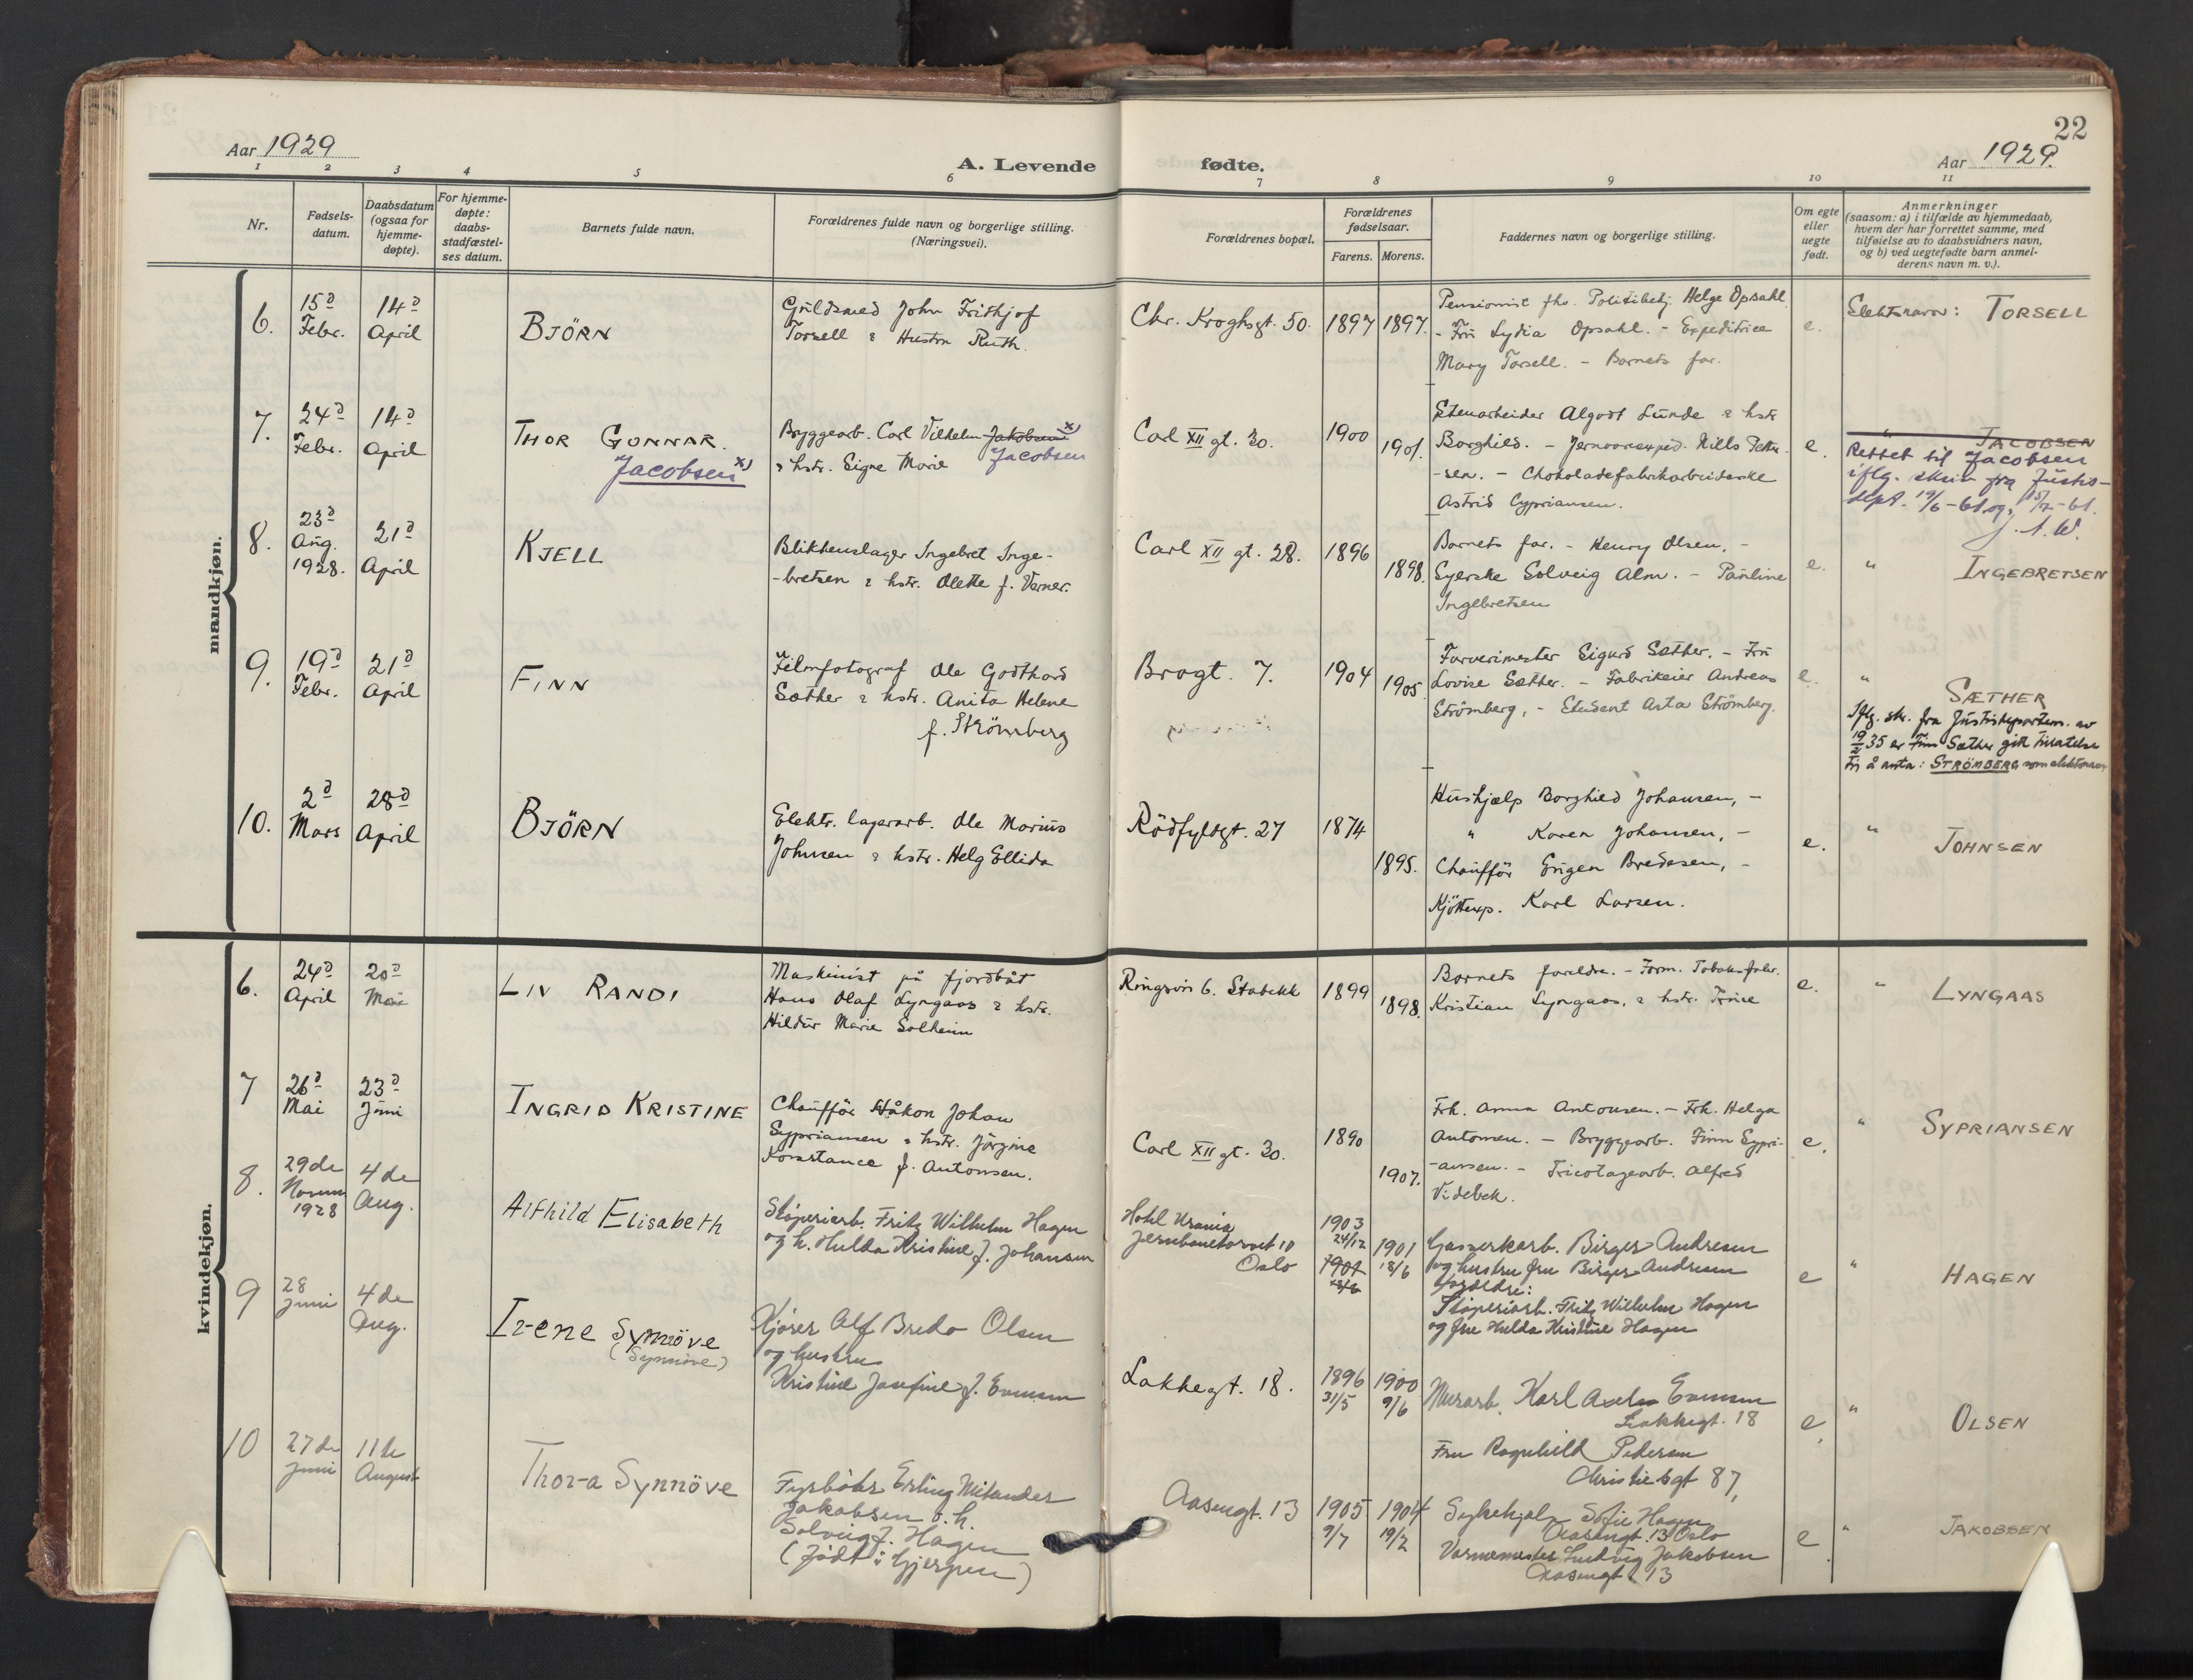 22
Aar 1929
Aar 1929.
A. Levende fødte.
1 2 3 4 5 6 7 8 9 10 11
Nr.
Fødsels-
datum.
Daabsdatum
(ogsaa for
hjemme-
døpte).
For hjemme-
døpte:
daabs-
stadfæstel-
ses datum.
Barnets fulde navn.
Forældrenes fulde navn og borgerlige stilling.
(Næringsvei).
Forældrenes bopæl.
Forældrenes
fødselsaar.
Farens. Morens.
Faddernes navn og borgerlige stilling.
Om egte
eller
uegte
født.
Anmerkninger
(saasom: a) i tilfælde av hjemmedaab,
hvem der har forrettet samme, med
tilføielse av to daabsvidners navn,
og b) ved uegtefødte barn anmel-
derens navn m. v.).
mandkjøn.
6.
15d
Febr.
14d
April
BJÖRN
Guldsmed John Frithjof
Torsell & Hustru Ruth.
Chr. Kroghsgt. 50.
1897
1897.
Pensionist fhv. Politibetj. Helge Opsahl
- Fru Lydia Opsahl. - Expeditrice
Mary Torsell. - Barnets far.
e.
Slektsnavn: TORSELL
7.
24d
Febr.
14d
April
THOR GUNNAR.
Jacobsen x)
Bryggearb. Carl Vilhelm Jakobsen x)
& hstr. Signe Marie Jacobsen
Carl XII gt. 30.
1900
1901.
Stenarbeider Algodt Lunde & hstr
Borghild. - Jernvareexped. Nills Petter-
-sen. - Chokoladefabrikarbeiderske
Astrid Cypriansen.
e.
" JACOBSEN
Rettet til Jacobsen
iflg. skriv fra Justis-
dept. 19/6-61 og 15/7-61.
8.
23d
Aug.
1928.
21d
April
KJELL
Blikkenslager Ingebret Inge-
-bretsen & hstr. Olette f. Verner.
Carl XII gt. 28.
1896
1898.
Barnets far. - Henry Olsen. -
Syerske Solveig Alm. - Pauline
Ingebretsen
e.
" INGEBRETSEN
9.
19d
Febr.
21d
April
FINN
Filmfotograf Ole Godthard
Sæther & hstr. Anita Helene
f. Strömberg
Brogt. 7.
1904
1905.
Farverimester Sigurd Sæther. - Fru
Lovise Sæther. - Fabrikeier Andreas
Strömberg. - Student Asta Strömberg.
e.
" SÆTHER
Iflg. skr. fra Justisdepartem. av
19/2 35 er Finn Sæther gitt tillatelse
til å anta: STRÖMBERG som slektsnavn
10.
2d
Mars
28d
April
BJÖRN
Elektr. lagerarb. Ole Marius
Johnsen & hstr. Helg Ellida
Rödfyldgt. 27
1874
1895.
Hushjælp Borghild Johansen, -
" Karen Johansen, -
Chaufför Eugen Bredesen, -
Kjöttexp. Karl Larsen.
e.
" JOHNSEN
kvindekjøn.
6.
24d
April
20d
Mai
LIV RANDI
Maskinist på fjordbåt
Hans Olaf Lyngaas & hstr.
Hildur Marie Solheim
Ringsvei 6. Stabekk
1899
1898.
Barnets foreldre. - Form. Tobaksfabr.
Kristian Lyngaas. & hstr. Trine
e.
" LYNGAAS
7
26d
Mai
23d
Juni
INGRID KRISTINE
Chaufför Håkon Johan
Sypriansen & hstr. Jörgine
Konstance f. Antonsen.
Carl XII gt. 30.
1890
1907.
Frk. Anna Antonsen. - Frk. Helga
Antonsen. - Bryggearb. Finn Sypri-
-ansen. - Tricotagearb. Alfred
Videbek.
e.
" SYPRIANSEN
8.
29de
Novem
1928
4de
Aug.
Alfhild Elisabeth
Støperiarb. Fritz Wilhelm Hagen
og h. Hulda Kristine f. Johansen
Hotel Urania
Jernbanetorvet 10
Oslo
1903
24/12
1901
18/6
1901
18/6
Gasverkarb. Birger Andresen
og hustru fru Birger Andresen
Foreldre:
Støperiarb. Fritz Wilhelm Hagen
og fru Hulda Kristine Hagen
e
" HAGEN
9
28
Juni
4de
Aug.
Irene Synnöve
(Synnöve)
Kjører Alf Bredo Olsen
og hustru
Kristine Josefine f. Evensen
Lakkegt. 18.
1896
31/5
1900
9/6
Murarb. Karl Axel Evensen
Lakkegt. 18
Fru Ragnhild Pedersen
Christiesgt 87,
e
" OLSEN
10
27de
Juni
11te
August
Thora Synnöve
Fyrbøter Erling Mikander
Jakobsen o. h.
Solveig f. Hagen
(født i Gjerpen)
Aasengt. 13
1905
9/7
1904
19/2
Sykehjelp Sofie Hagen
Aasengt. 13 Oslo
Varmemester Ludvig Jakobsen
Aasengt 13
e
" JAKOBSEN